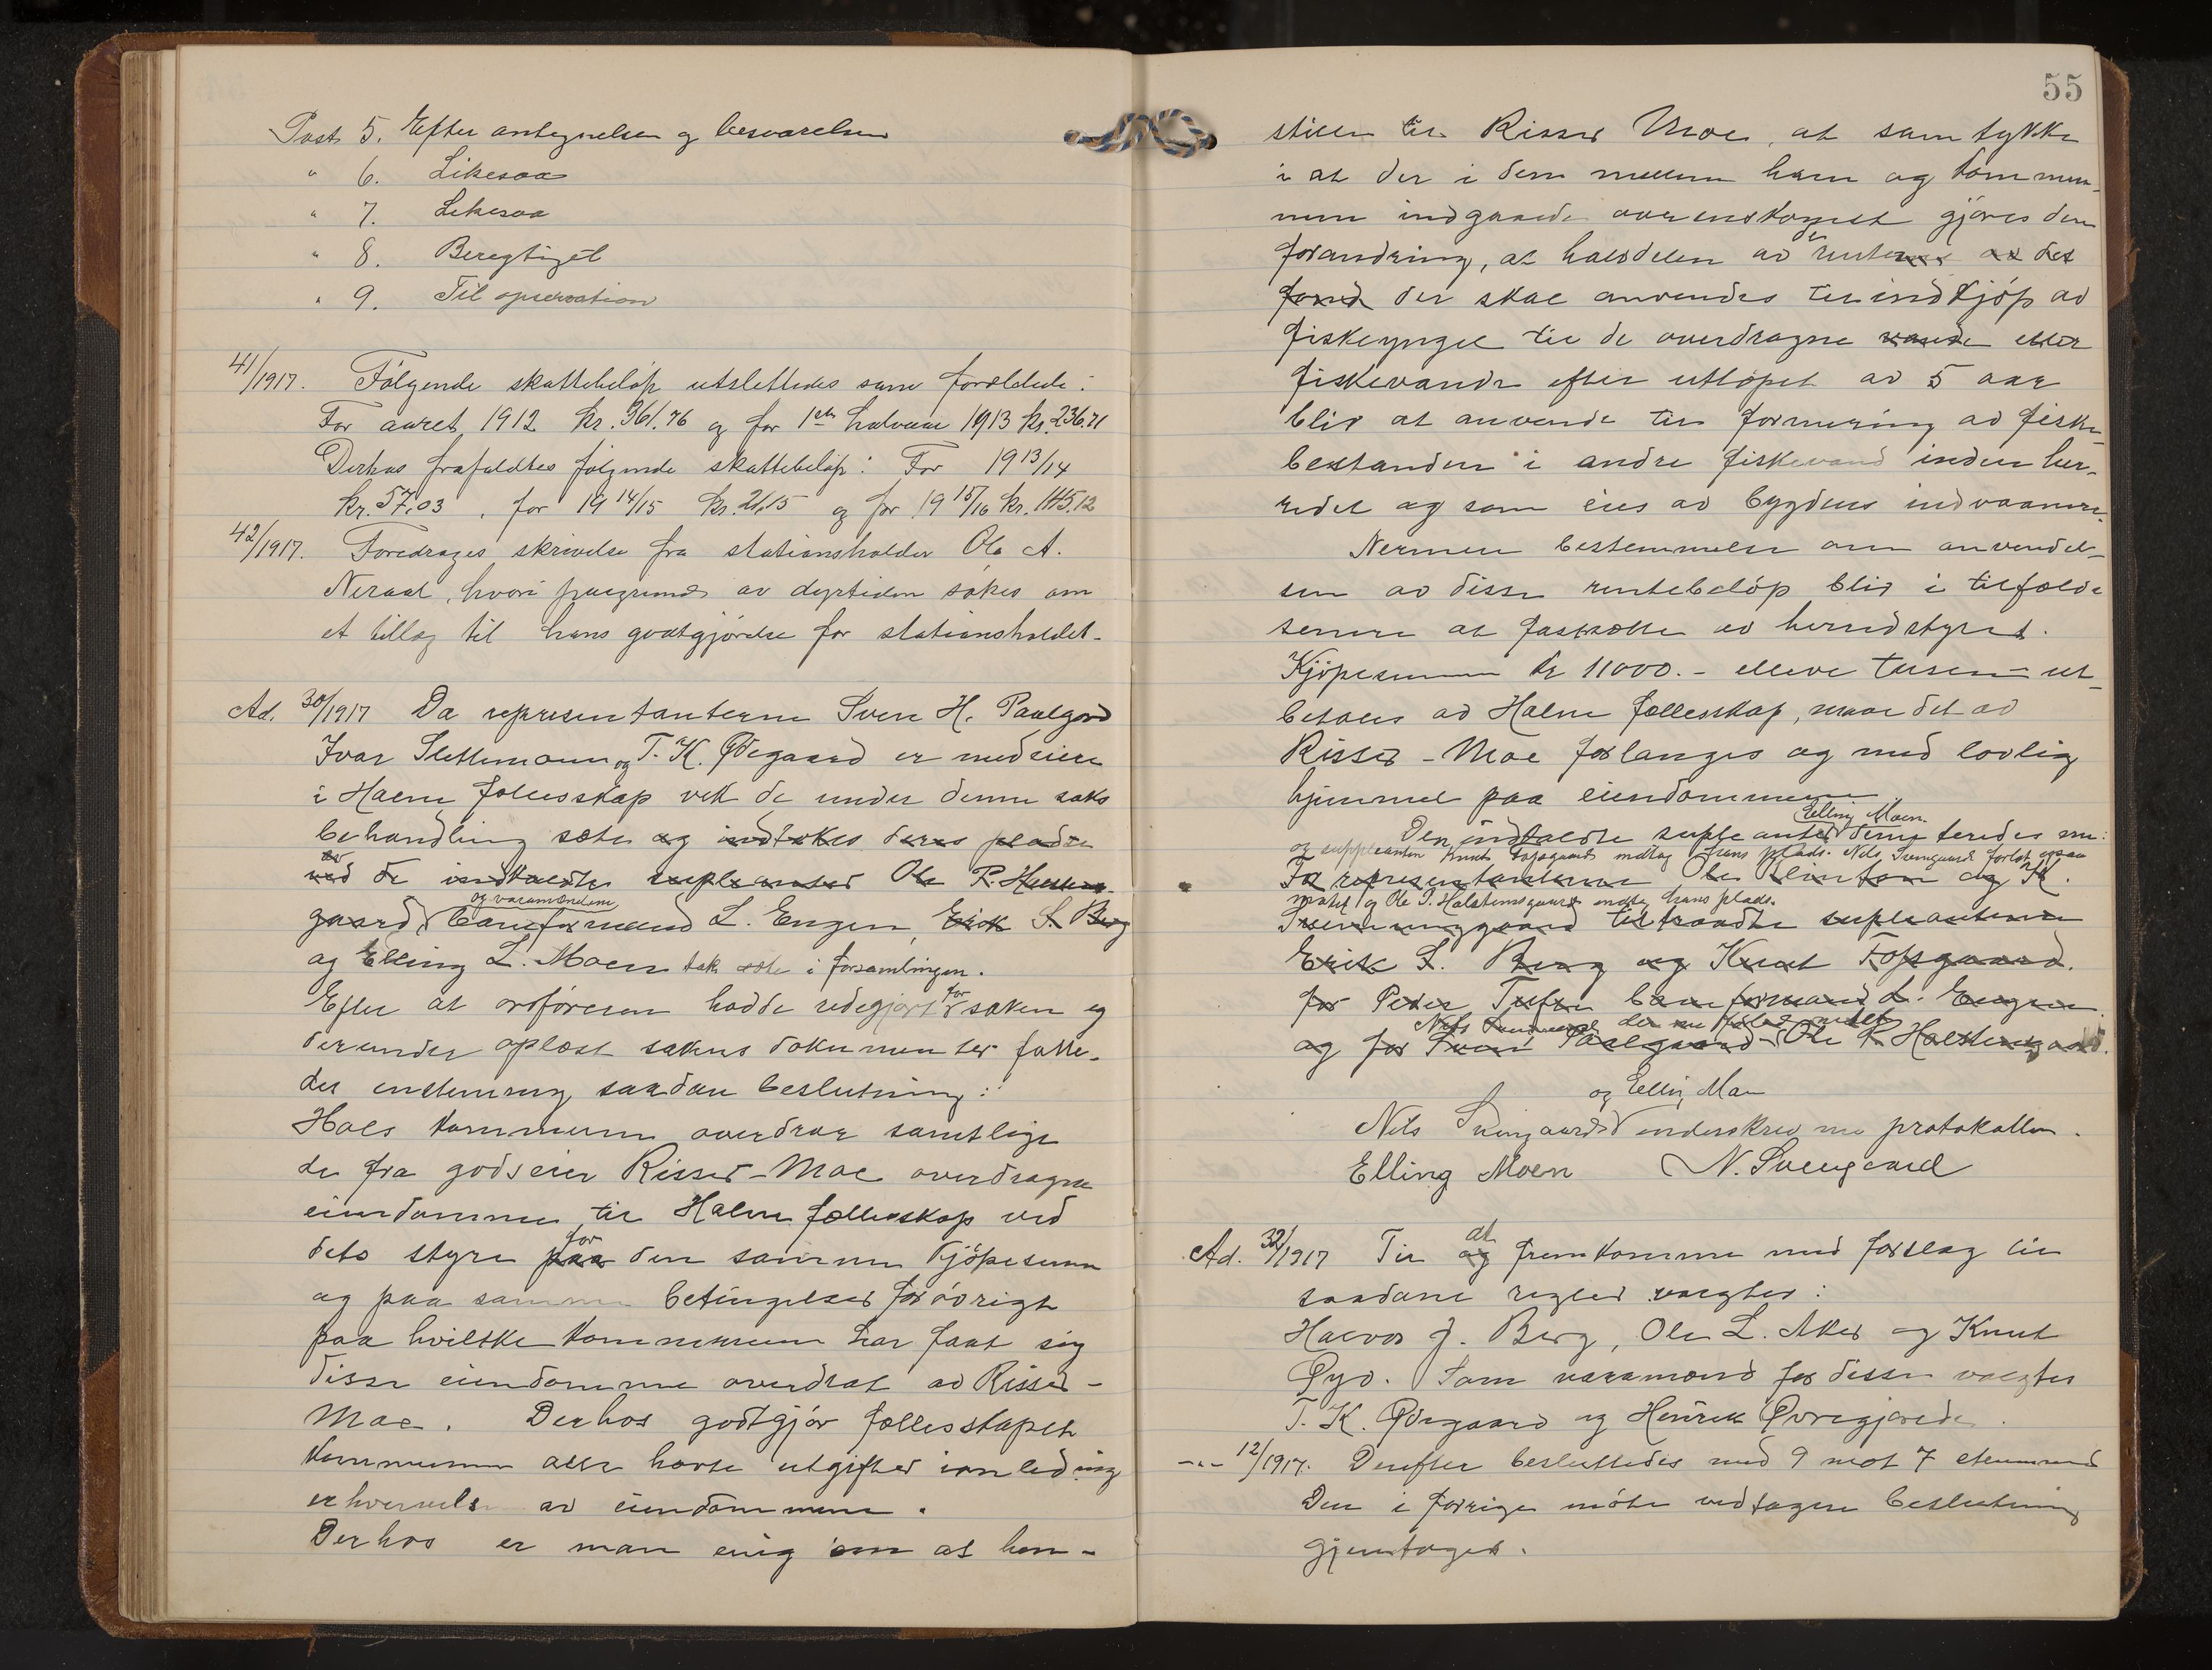 Post 5. Efter antegnelsen og besvarelsen
" 6. Likesaa
" 7. Likesaa
" 8. Beregtiget
" 9. Til observation
41/1917. Følgende skattebeløp utslettedes som forældede:
For aaret 1912 kr. 361.76 og for 1ste halvaar 1913 kr. 236.71
Derhos frafaldtes følgende skattebeløp: For 1913/14
kr. 57,03, for 1914/15 kr. 21,15 og for 1915/16 kr. 145,12
42/1917. Foredrages skrivelse fra stationsholder Ole A.
Neraal, hvori paagrund av dyrtiden søkes om
et tillæg til hans godtgjørelse for stationsholdet.
Ad. 30/1917 Da representanterne Sven H. Paulgard
Ivar Slettemoen og T. K. Ødegaard er medeiere
i Halne fællesskap vek de under denne saks
behandling sæte og indtokes deres pladse
ved av de indkaldte supleanter Ole P. Halstens-
gaard og varamændene banformand L. Engen, Erik S. Berg
og Elling L. Moen tok sæte i forsamlingen.
Efter at ordføreren hadde redegjort for saken og
derunder oplæst sakens dokumenter fatte-
des enstemmig saadan beslutning:
Hols kommune overdrar samtlige
de fra godseier Risser-Moe overdragne
eiendomme til Halne fællesskap ved
dets styre paa for den samme kjøpesum
og paa samme betingelser forøvrigt
paa hvilke kommunen har faat sig
disse eiendomme overdrat av Risser-
Moe. Derhos godtgjør fællesskapet
kommunen alle havte utgifter i anledning
erhvervelse av eiendommene.
Derhos er man enig om at hen-
55
stille til Risser Moe, at samtykke
i at der i den mellem ham og kommu-
nen indgaaede overenskomst gjøres den
forandring, at halvdelen av de renterne av det
fond der skal anvendes til indkjøp av
fiskeyngel til de overdragne vande eller
fiskevande efter utløpet av 5 aar
blir at anvende til formering av fiske-
bestanden i andre fiskevand inden her-
redet og som eies av bygdens indvaanere.
Nermere bestemmelse om anvendel-
sen av disse rentebeløp blir i tilfælde
senere at fastsætte av herredstyret.
Kjøpesummen kr 11000.- elleve tusen - ut-
betales av Halne fællesskap, naar det av
Risser-Moe forlanges og med lovlig
hjemmel paa eiendommene.
Elling Moen
Den indkaldte supleant demiteredes nu:
og suppleanten Knut Fopsgaard indtog hans plads. Nils Svengaard forlot ogsaa
For representanterne Ole Clemtsen og K.
møtet og Ole P. Halstensgaard indtog hans plads.
Svenungsgaard tiltraadte supleanterne
Erik S. Berg og Knut Fopsgaard.
for Peder Tufte banformand L. Engen
Nils Svengaard der nu forlod møtet
og for Svend Paulgaard - Ole P. Halstensgaard.
og Elling Moen
Nils Svengaard underskrev nu protokollen.
Elling Moen N. Svengaard
Ad. 32/1917 Til og at fremkomme med forslag til
saadane regler valgtes:
Halvor J. Berg, Ole L. Aker og Knut
Øyo. Som varamænd for disse valgtes
T. K. Ødegaard og Henrik Øvregjerde.
-"- 12/1917. Derefter besluttedes med 9 mot 7 stemmer
Den i forrige møte vedtagne beslutning
gjentages.